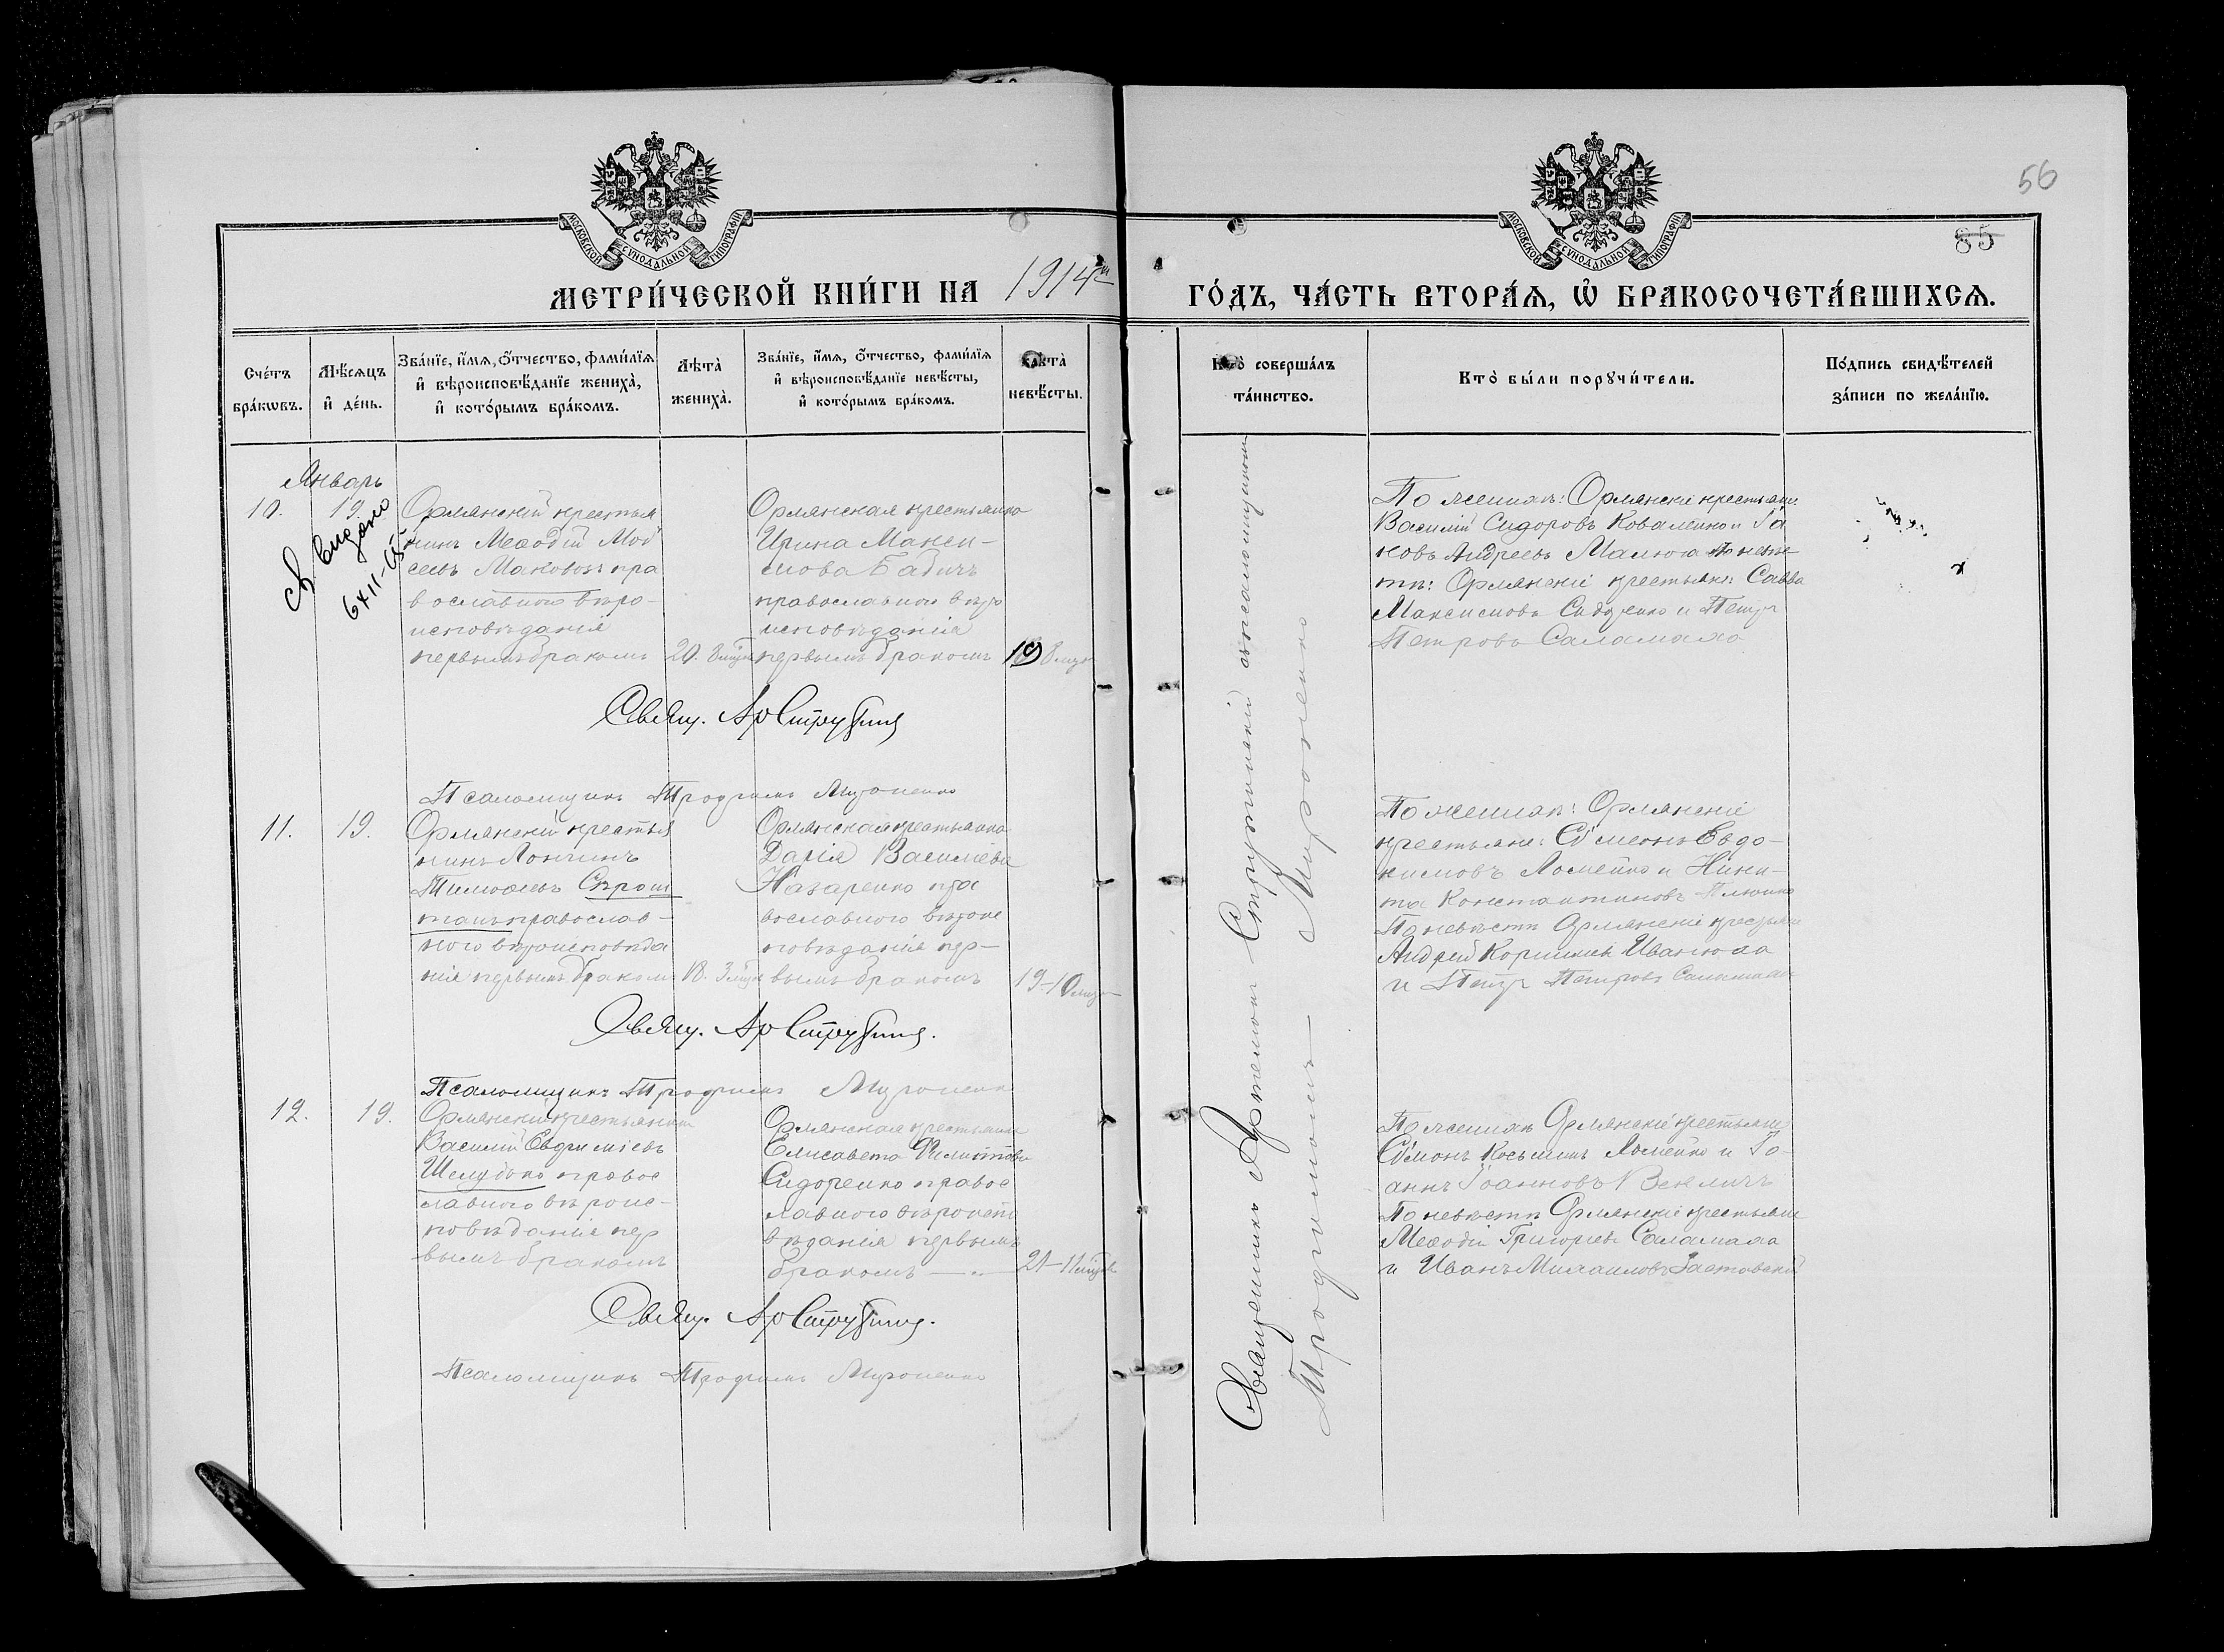 56
85
МОСКОВСКОЙ СѴНОДАЛЬНОЙ ТИПОГРАФІИ
МОСКОВСКОЙ СѴНОДАЛЬНОЙ ТИПОГРАФІИ
МЕТРИ́ЧЕСКОЙ КНИ́ГИ НА 1914й ГО́ДЪ, ЧА́СТЬ ВТОРА́Ѧ, Ѽ БРАКОСОЧЕТА́ВШИХСѦ.
Сче́тъ бра́кѡвъ.
Мѣ́сѧцъ и҆ де́нь.
Зва́нїе, и҆́мѧ, ѻ҆́тчество, фами́лїѧ и҆ вѣроисповѣ́данїе жениха̀, и҆ кото́рымъ бра́комъ.
Лѣ́та жениха̀.
Зва́нїе, и҆́мѧ, ѻ҆́тчество, фами́лїѧ и҆ вѣроисповѣ́данїе невѣ́сты, и҆ кото́рымъ бра́комъ.
Лѣ́та невѣ́сты.
Кто̀ соверша́лъ та́инство.
Кто̀ бы́ли порꙋчи́тели.
По́дпись свидѣ́телей за́писи по жела́нїю.
Январь
10.
19.
выдано
Орлянскій крестья
нинъ Меѳодій Мой
сеевъ Маковозъ пра
вославного вѣро-
исповѣданія
первымъ бракомъ
20.
Орлянская крестьянка
Ирина Макси-
мова Бабичъ
православного вѣро
исповѣданія
первымъ бракомъ
По женихѣ: Орлянскіе крестьяне:
Василій Сидоровъ Коваленко и Іа
ковъ Андреевъ Малюга По невѣ-
стѣ: Орлянскіе крестьяне: Савва
Максимовъ Сидоренко и Петръ
Петровъ Саламаха
Свящ. Ар Струтин
Псаломщикъ Трофимъ Мироненко
11.
19.
Орлянскій крестья
нинъ Лонгинъ
Тимоѳеевъ Сѣрош
танъ православ-
ного вѣроисповѣда
нія первымъ бракомъ
18.
Орлянская крестьянка
Дарія Васильева
Назаренко пра
вославного вѣроис
повѣданія пер-
вымъ бракомъ
19-10
По женихѣ: Орлянскіе
крестьяне: Сѵмеонъ Евдо-
кимовъ Ломейко и Ники-
та Константиновъ
По невѣстѣ Орлянскіе крестьяне
Андрей Корниліевъ Иванюха
и Петръ Петровъ Саламаха
Свящ. Ар Струтин.
Псаломщикъ Трофимъ Мироненко
12.
19.
Орлянскій крестьянинъ
Василій Евфиміевъ
Шелудько правос
лавного вѣроис-
повѣданія пер
вымъ бракомъ
Орлянская крестьянка
Елисавета Филиппова
Сидоренко правос
лавного вѣроиспо
вѣданія первымъ
бракомъ
21-11
По женихѣ Орлянскіе крестьяне
Сѵмеонъ Косьминъ Ломейко и Іо-
аннъ Іоанновъ Векличъ
По невѣстѣ Орлянскіе крестьяне
Меѳодій Григорьевъ Саламаха
и Иванъ Михаиловъ
Свящ. Ар Струтин.
Псаломщикъ Трофимъ Мироненко
Священникъ Артемонъ Струтинскій съ псаломщикомъ
Трофимомъ Мироненко